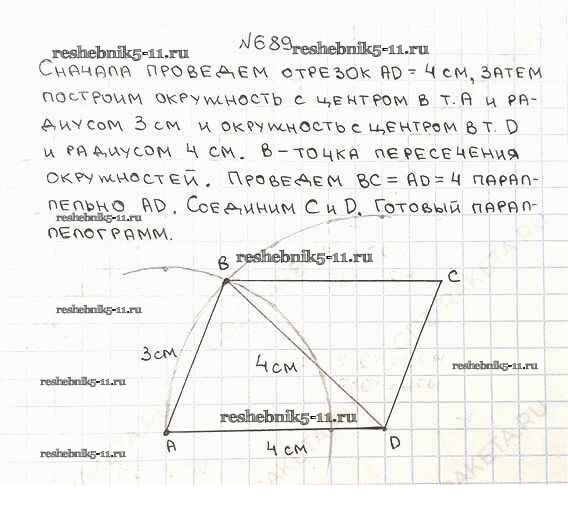 №689
reshebnik5-11.ru
reshebnik5-11.ru
Сначала проведем отрезок AD = 4 см, затем
построим окружность с центром в т. А и ра-
диусом 3 см и окружность с центром в т. D
и радиусом 4 см. В – точка пересечения
окружностей. Проведем BC = AD = 4 парал-
лельно AD. Соединим С и D. Готовый парал-
reshebnik5-11.ru
лелограмм.
B
reshebnik5-11.ru
C
reshebnik5-11.ru
3 см
4 см
reshebnik5-11.ru
reshebnik5-11.ru
reshebnik5-11.ru
A
4 см
D
reshebnik5-11.ru